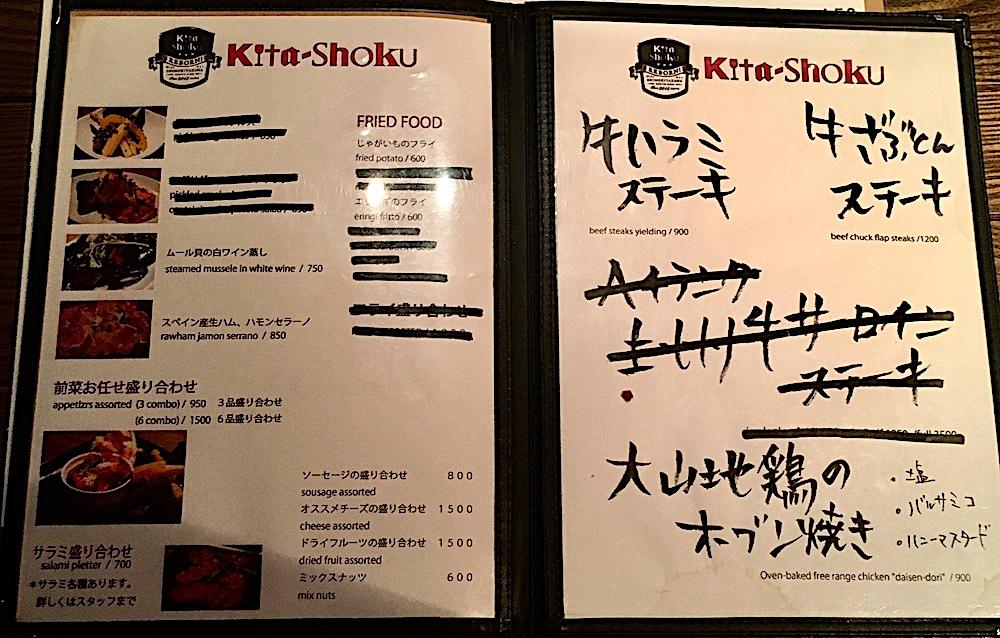 Kita Shoku
REBORN!
Kita-Shoku
FRIED FOOD
じゃがいものフライ
fried potato / 600
エリンギのフライ
eringi fritto / 600
ムール貝の白ワイン蒸し
steamed mussele in white wine / 750
スペイン産生ハム、ハモンセラーノ
rawham jamon serrano / 850
前菜お任せ盛り合わせ
appetizrs assorted (3 combo) / 950 3品盛り合わせ
(6 combo) / 1500 6品盛り合わせ
ソーセージの盛り合わせ 800
sousage assorted
オススメチーズの盛り合わせ 1500
cheese assorted
ドライフルーツの盛り合わせ 1500
dried fruit assorted
ミックスナッツ 600
mix nuts
サラミ盛り合わせ
salami pletter / 700
*サラミ各種あります。
詳しくはスタッフまで
Kita Shoku
REBORN!
Kita-Shoku
牛ハラミ
ステーキ
beef steaks yielding / 900
牛ざぶとん
ステーキ
beef chuck flap steaks /1200
牛サーロイン
ステーキ
大山地鶏の
オーブン焼き
・塩
・バルサミコ
・ハニーマスタード
Oven-baked free range chicken "daisen-dori" / 900